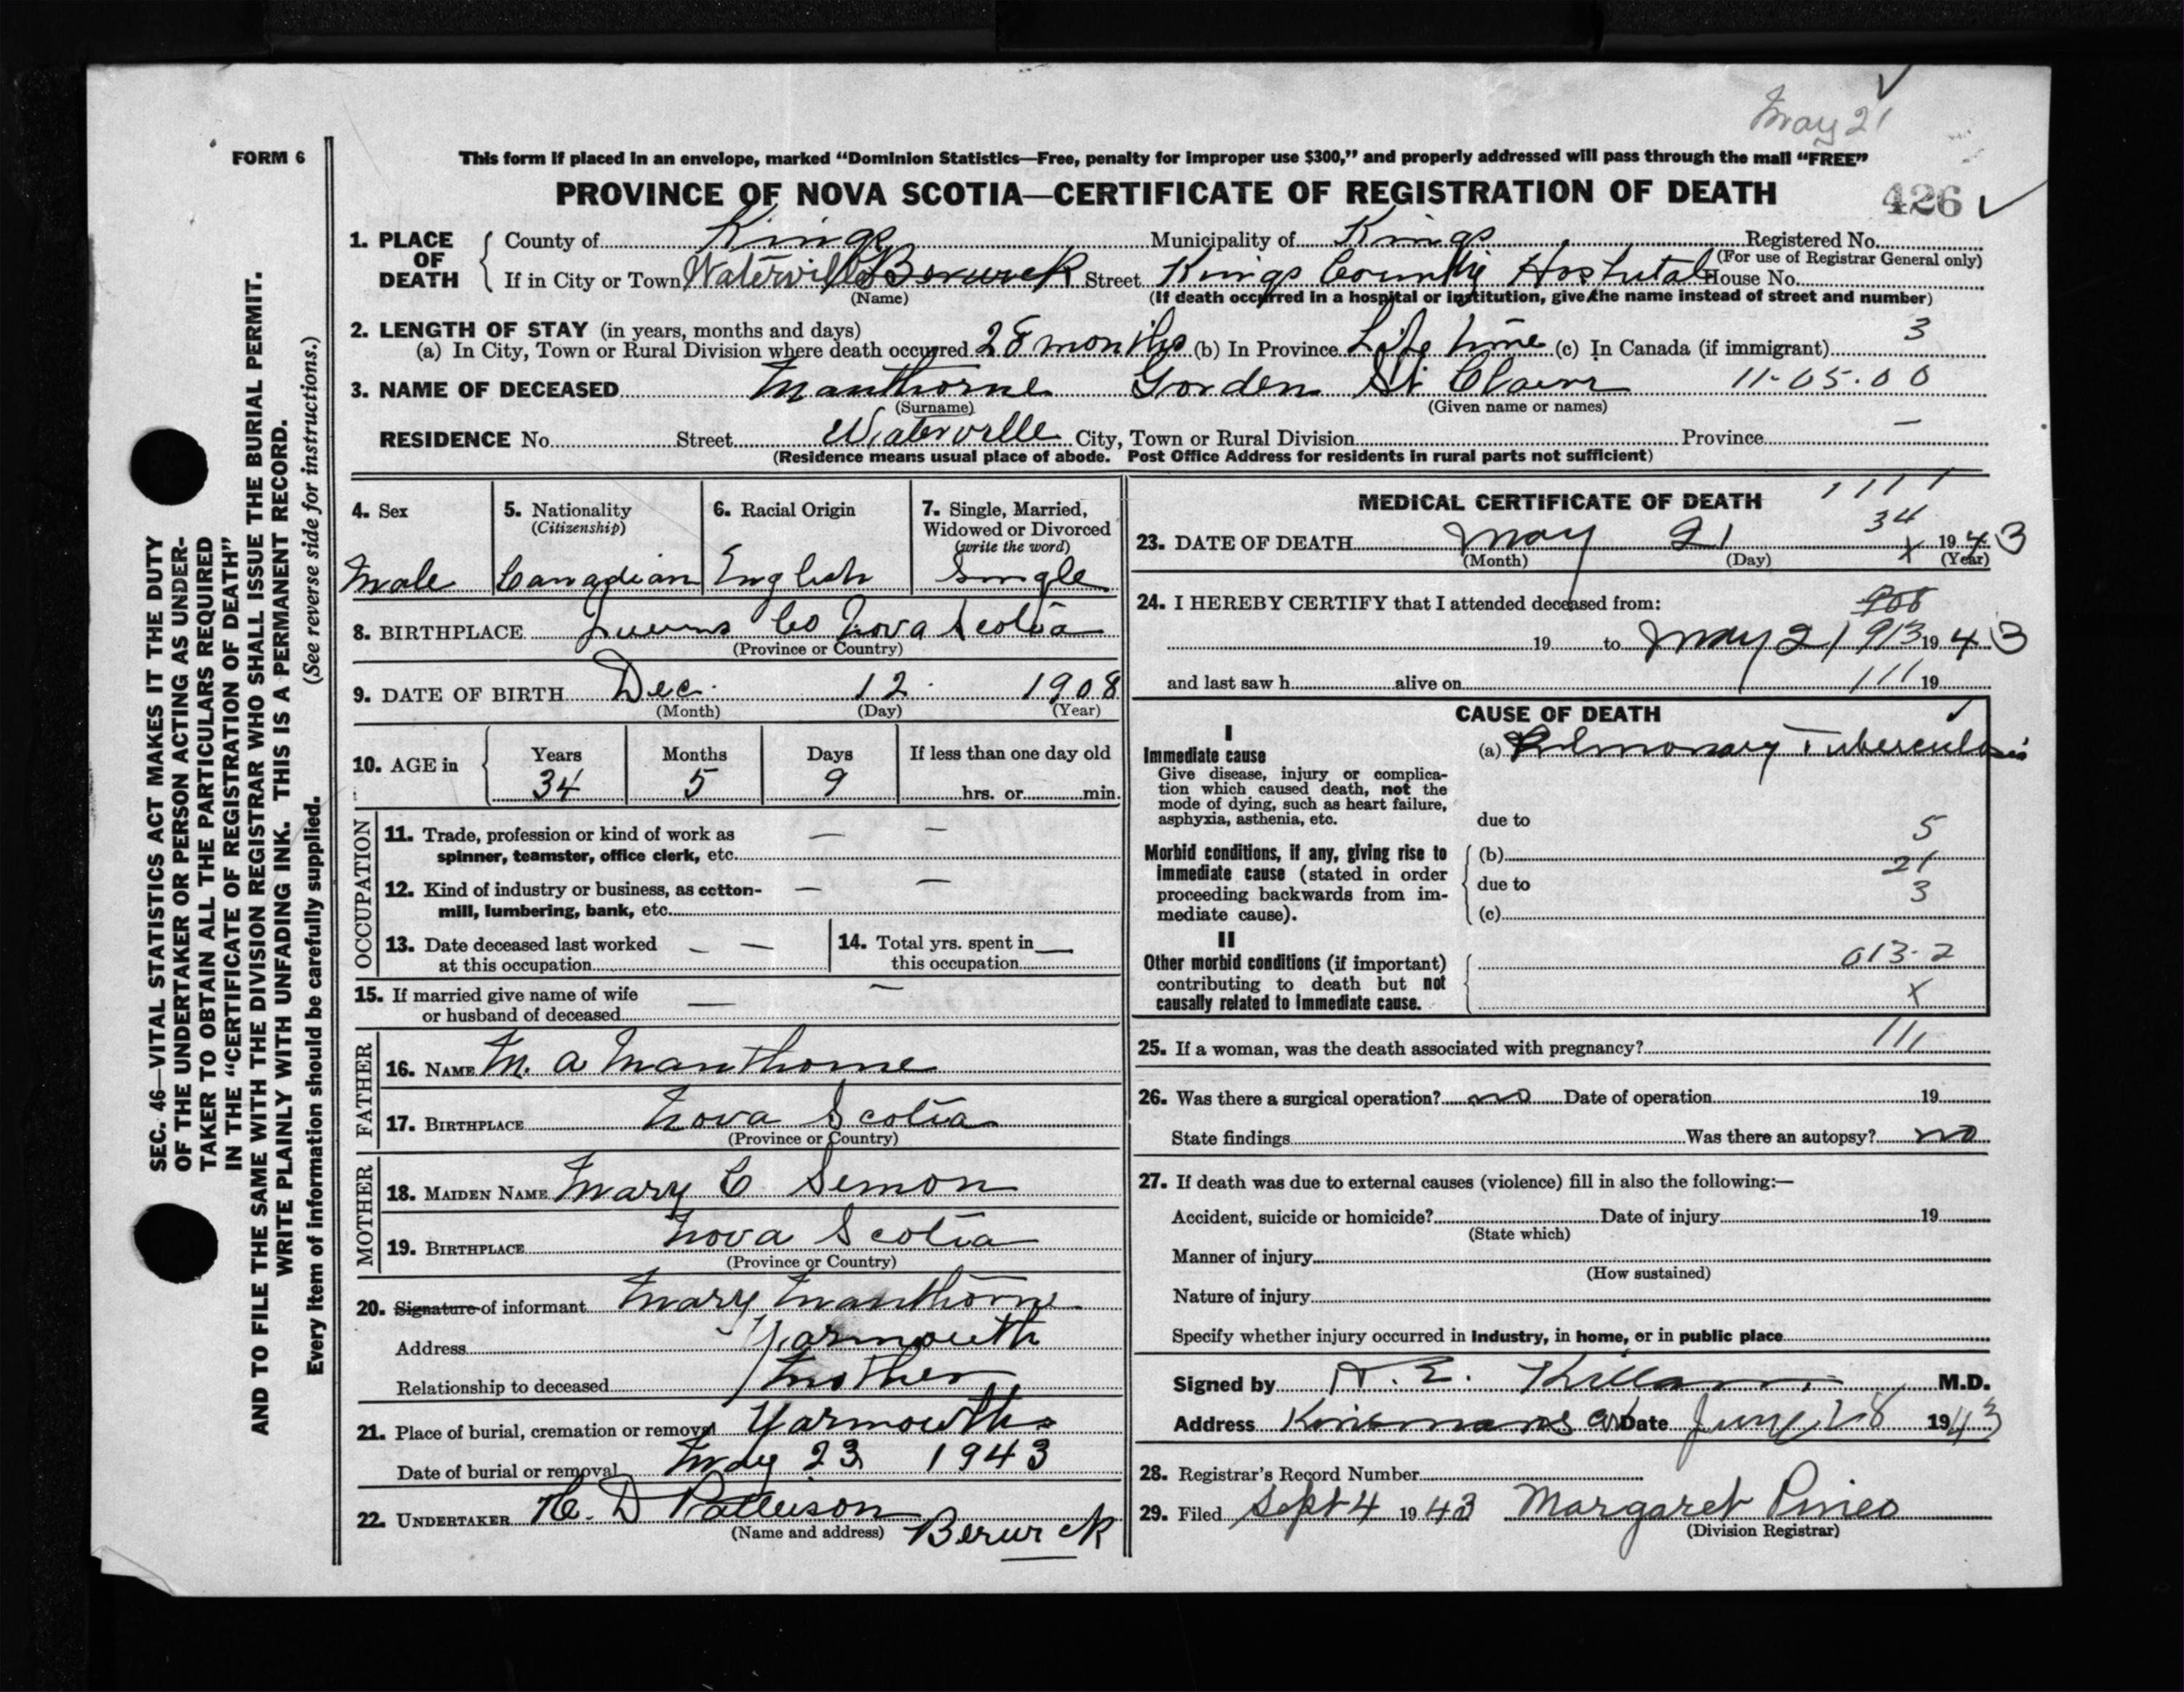 May 21
FORM 6
This form if placed in an envelope, marked “Dominion Statistics—Free, penalty for improper use $300,” and properly addressed will pass through the mail “FREE”
PROVINCE OF NOVA SCOTIA—CERTIFICATE OF REGISTRATION OF DEATH
426
1. PLACE OF DEATH
County of Kings Municipality of Kings Registered No.
(For use of Registrar General only)
If in City or Town Waterville Berwick Street Kings County Hospital House No.
(Name) (If death occurred in a hospital or institution, give the name instead of street and number)
2. LENGTH OF STAY (in years, months and days) 3
(a) In City, Town or Rural Division where death occurred 28 months (b) In Province Life time (c) In Canada (if immigrant)
3. NAME OF DECEASED Manthorne Gorden St Claire 11-05.00
(Surname) (Given name or names)
RESIDENCE No. Street Waterville City, Town or Rural Division Province —
(Residence means usual place of abode. Post Office Address for residents in rural parts not sufficient)
SEC. 46—VITAL STATISTICS ACT MAKES IT THE DUTY
OF THE UNDERTAKER OR PERSON ACTING AS UNDER-
TAKER TO OBTAIN ALL THE PARTICULARS REQUIRED
IN THE “CERTIFICATE OF REGISTRATION OF DEATH”
AND TO FILE THE SAME WITH THE DIVISION REGISTRAR WHO SHALL ISSUE THE BURIAL PERMIT.
WRITE PLAINLY WITH UNFADING INK. THIS IS A PERMANENT RECORD.
Every item of information should be carefully supplied. (See reverse side for instructions.)
4. Sex
Male
5. Nationality
(Citizenship)
Canadian
6. Racial Origin
English
7. Single, Married,
Widowed or Divorced
(write the word)
Single
8. BIRTHPLACE Queens Co Nova Scotia
(Province or Country)
9. DATE OF BIRTH Dec. 12 1908
(Month) (Day) (Year)
10. AGE in
Years Months Days If less than one day old
34 5 9 hrs. or min.
OCCUPATION
11. Trade, profession or kind of work as — —
spinner, teamster, office clerk, etc.
12. Kind of industry or business, as cotton- — —
mill, lumbering, bank, etc.
13. Date deceased last worked — —
at this occupation
14. Total yrs. spent in —
this occupation
15. If married give name of wife — —
or husband of deceased
FATHER
16. NAME M. A Manthorne
17. BIRTHPLACE Nova Scotia
(Province or Country)
MOTHER
18. MAIDEN NAME Mary C Semon
19. BIRTHPLACE Nova Scotia
(Province or Country)
20. Signature of informant Mary Manthorne
Address Yarmouth
Relationship to deceased Mother
21. Place of burial, cremation or removal Yarmouth
Date of burial or removal May 23 1943
22. UNDERTAKER H. D Patterson
(Name and address) Berwick
MEDICAL CERTIFICATE OF DEATH 1111
34
23. DATE OF DEATH May 21 x 1943
(Month) (Day) (Year)
24. I HEREBY CERTIFY that I attended deceased from: 908
19 to May 21 913 1943
and last saw h alive on 111 19
CAUSE OF DEATH
I
Immediate cause
Give disease, injury or complica-
tion which caused death, not the
mode of dying, such as heart failure,
asphyxia, asthenia, etc.
(a) Pulmonary Tuberculosis
due to
5
Morbid conditions, if any, giving rise to
immediate cause (stated in order
proceeding backwards from im-
mediate cause).
(b)
21
due to
3
(c)
II
Other morbid conditions (if important)
contributing to death but not
causally related to immediate cause.
013-2
x
25. If a woman, was the death associated with pregnancy? 111
26. Was there a surgical operation? no Date of operation 19
State findings Was there an autopsy? no
27. If death was due to external causes (violence) fill in also the following:—
Accident, suicide or homicide? Date of injury 19
(State which)
Manner of injury
(How sustained)
Nature of injury
Specify whether injury occurred in industry, in home, or in public place
Signed by H. E. Killam M.D.
Address Date June 28 1943
28. Registrar's Record Number
29. Filed Sept 4 1943 Margaret Pineo
(Division Registrar)